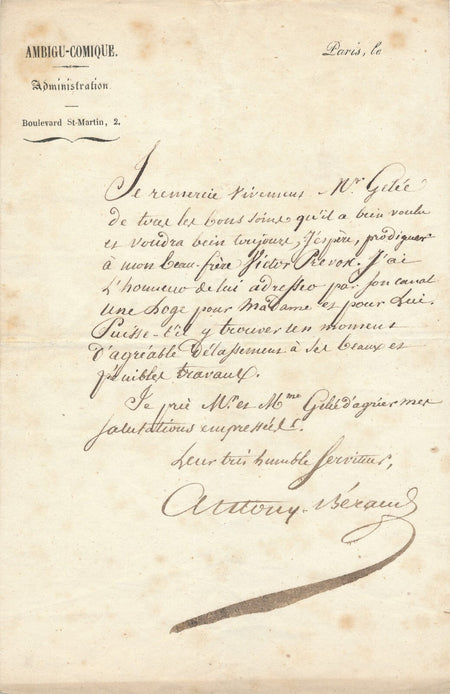 AMBIGU-COMIQUE.
Paris, le
Administration
Boulevard St-Martin, 2.
Je remercie vivement Mr. Gelée
de tous les bons soins qu'il a bien voulu
et voudra bien toujours, j'espère, prodiguer
à mon beau-frère Victor Prevost. J'ai
l'honneur de lui adresser par son canal
une Loge pour Madame et pour Lui.
Puisse-t-il y trouver un moment
d'agréable délassement à ses beaux et
pénibles travaux.
Je prie Mr. et Mme Gelée d'agréer mes
salutations empressées.
Leur très humble Serviteur,
Antony-Béraud